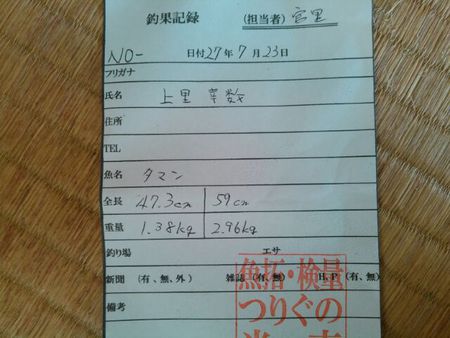 釣果記録 (担当者) 宮里
NO- 日付 27年 7月 23日
フリガナ
氏名 上里
住所
TEL
魚名 タマン
全長 47.3cm 59cm
重量 1.38kg 2.96kg
釣り場 エサ
新聞 (有、無、外) 雑誌 (有、無) H.P (有、無)
備考
魚拓・検量
つりぐの